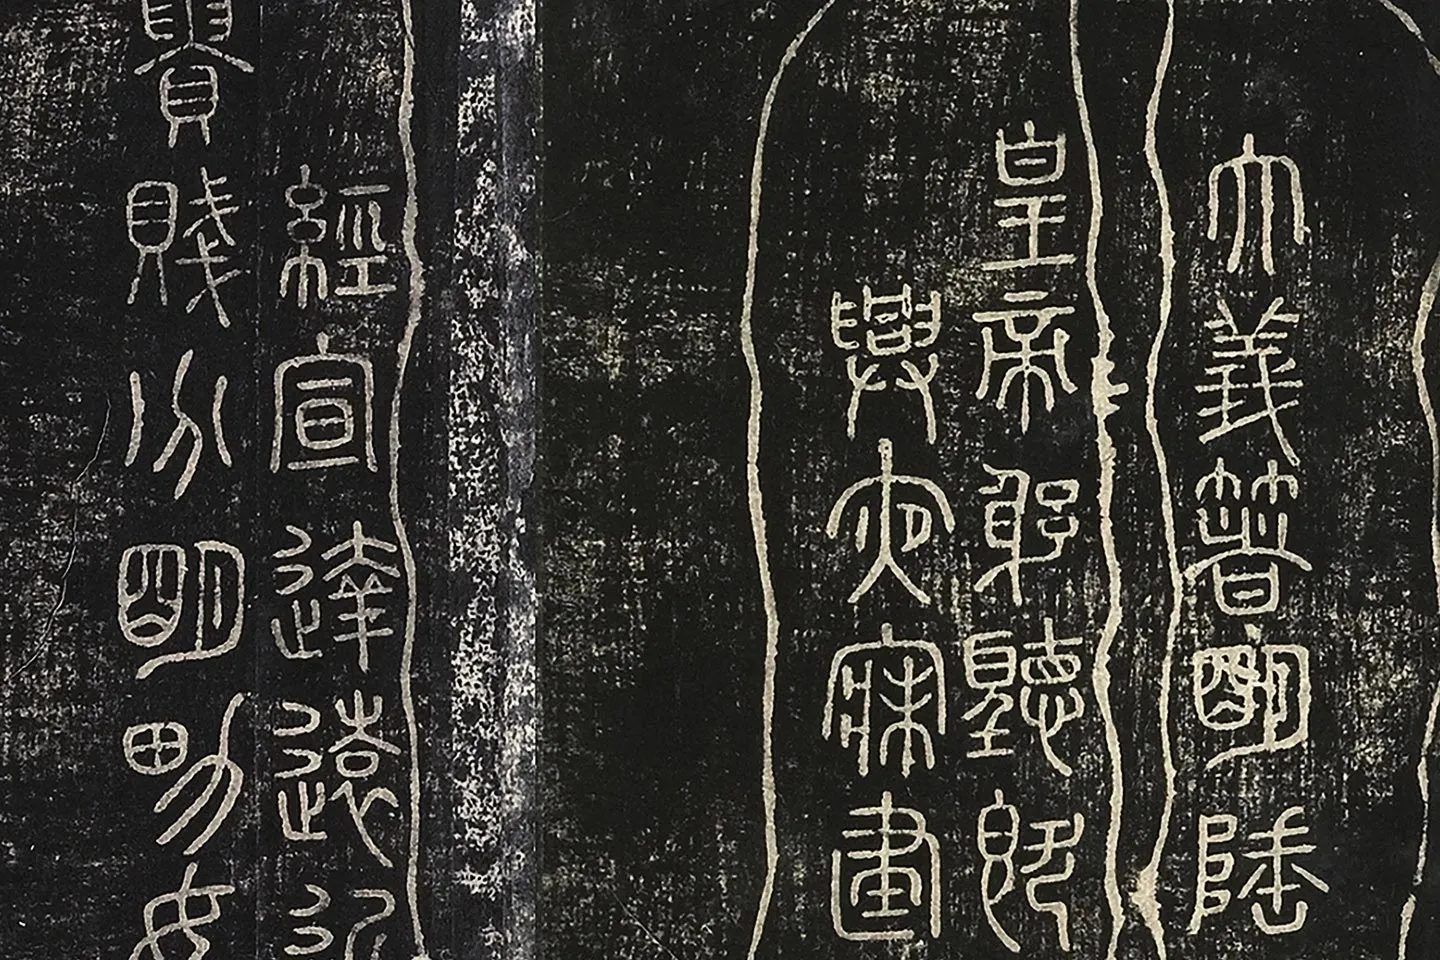 大義箸明陲
皇帝躬聽既
興夜寐建
經宣達遠近
貴賤分明男女